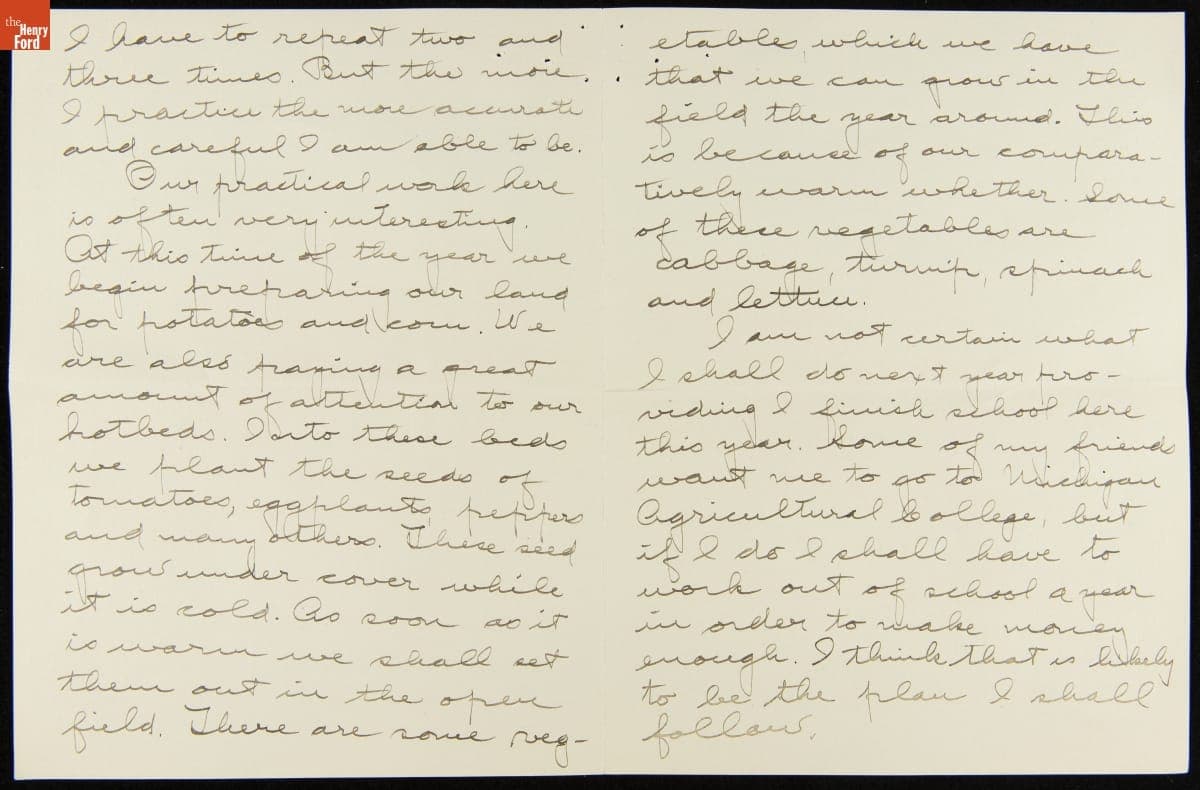 the
Henry
Ford
I have to repeat two and
three times. But the more
I practice the more accurate
and careful I am able to be.
Our practical work here
is often very interesting.
At this time of the year we
begin preparing our land
for potatoes and corn. We
are also paying a great
amount of attention to our
hotbeds. Into these beds
we plant the seeds of
tomatoes, eggplants, peppers
and many others. These seed
grow under cover while
it is cold. As soon as it
is warm we shall set
them out in the open
field. There are some veg-
etables, which we have
that we can grow in the
field the year around. This
is because of our compara-
tively warm whether. Some
of these vegetables are
cabbage, turnip, spinach
and lettuce.
I am not certain what
I shall do next year pro-
viding I finish school here
this year. Some of my friends
want me to go to Michigan
Agricultural College, but
if I do I shall have to
work out of school a year
in order to make money
enough. I think that is likely
to be the plan I shall
follow.